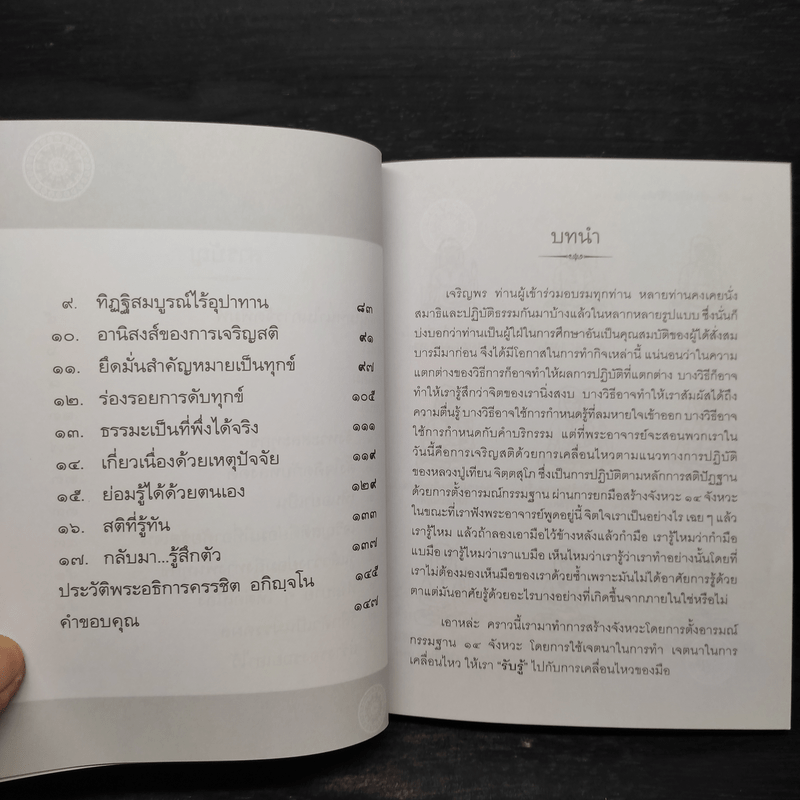 ๙. ทิฏฐิสมบูรณ์ไร้อุปาทาน ๘๓
๑๐. อานิสงส์ของการเจริญสติ ๙๑
๑๑. ยึดมั่นสำคัญหมายเป็นทุกข์ ๙๗
๑๒. ร่องรอยการดับทุกข์ ๑๐๕
๑๓. ธรรมะเป็นที่พึ่งได้จริง ๑๑๑
๑๔. เกี่ยวเนื่องด้วยเหตุปัจจัย ๑๑๙
๑๕. ย่อมรู้ได้ด้วยตนเอง ๑๒๙
๑๖. สติที่รู้ทัน ๑๓๓
๑๗. กลับมา...รู้สึกตัว ๑๓๗
ประวัติพระอธิการครรชิต อกิญฺจโน ๑๔๕
คำขอบคุณ ๑๔๗
บทนำ
เจริญพร ท่านผู้เข้าร่วมอบรมทุกท่าน หลายท่านคงเคยนั่ง
สมาธิและปฏิบัติธรรมกันมาบ้างแล้วในหลากหลายรูปแบบ ซึ่งนั่นก็
บ่งบอกว่าท่านเป็นผู้ใฝ่ในการศึกษาอันเป็นคุณสมบัติของผู้ได้สั่งสม
บารมีมาก่อน จึงได้มีโอกาสในการทำกิจเหล่านี้ แน่นอนว่าในความ
แตกต่างของวิธีการก็อาจทำให้ผลการปฏิบัติที่แตกต่าง บางวิธีก็อาจ
ทำให้เรารู้สึกว่าจิตของเรานิ่งสงบ บางวิธีอาจทำให้เราสัมผัสได้ถึง
ความตื่นรู้ บางวิธีอาจใช้การกำหนดรู้ที่ลมหายใจเข้าออก บางวิธีอาจ
ใช้การกำหนดกับคำบริกรรม แต่ที่พระอาจารย์จะสอนพวกเราใน
วันนี้คือการเจริญสติด้วยการเคลื่อนไหวตามแนวทางการปฏิบัติ
ของหลวงปู่เทียน จิตฺตสุโภ ซึ่งเป็นการปฏิบัติตามหลักการสติปัฏฐาน
ด้วยการตั้งอารมณ์กรรมฐาน ผ่านการยกมือสร้างจังหวะ ๑๔ จังหวะ
ในขณะที่เราฟังพระอาจารย์พูดอยู่นี้ จิตใจเราเป็นอย่างไร เฉย ๆ แล้ว
เรารู้ไหม แล้วถ้าลองเอามือไว้ข้างหลังแล้วกำมือ เรารู้ไหมว่ากำมือ
แบมือ เรารู้ไหมว่าเราแบมือ เห็นไหมว่าเรารู้ว่าเราทำอย่างนั้นโดยที่
เราไม่ต้องมองเห็นมือของเราด้วยซ้ำเพราะมันไม่ได้อาศัยการรู้ด้วย
ตาแต่มันอาศัยรู้ด้วยอะไรบางอย่างที่เกิดขึ้นจากภายในใช่หรือไม่
เอาหล่ะ คราวนี้เรามาทำการสร้างจังหวะโดยการตั้งอารมณ์
กรรมฐาน ๑๔ จังหวะ โดยการใช้เจตนาในการทำ เจตนาในการ
เคลื่อนไหว ให้เรา "รับรู้" ไปกับการเคลื่อนไหวของมือ